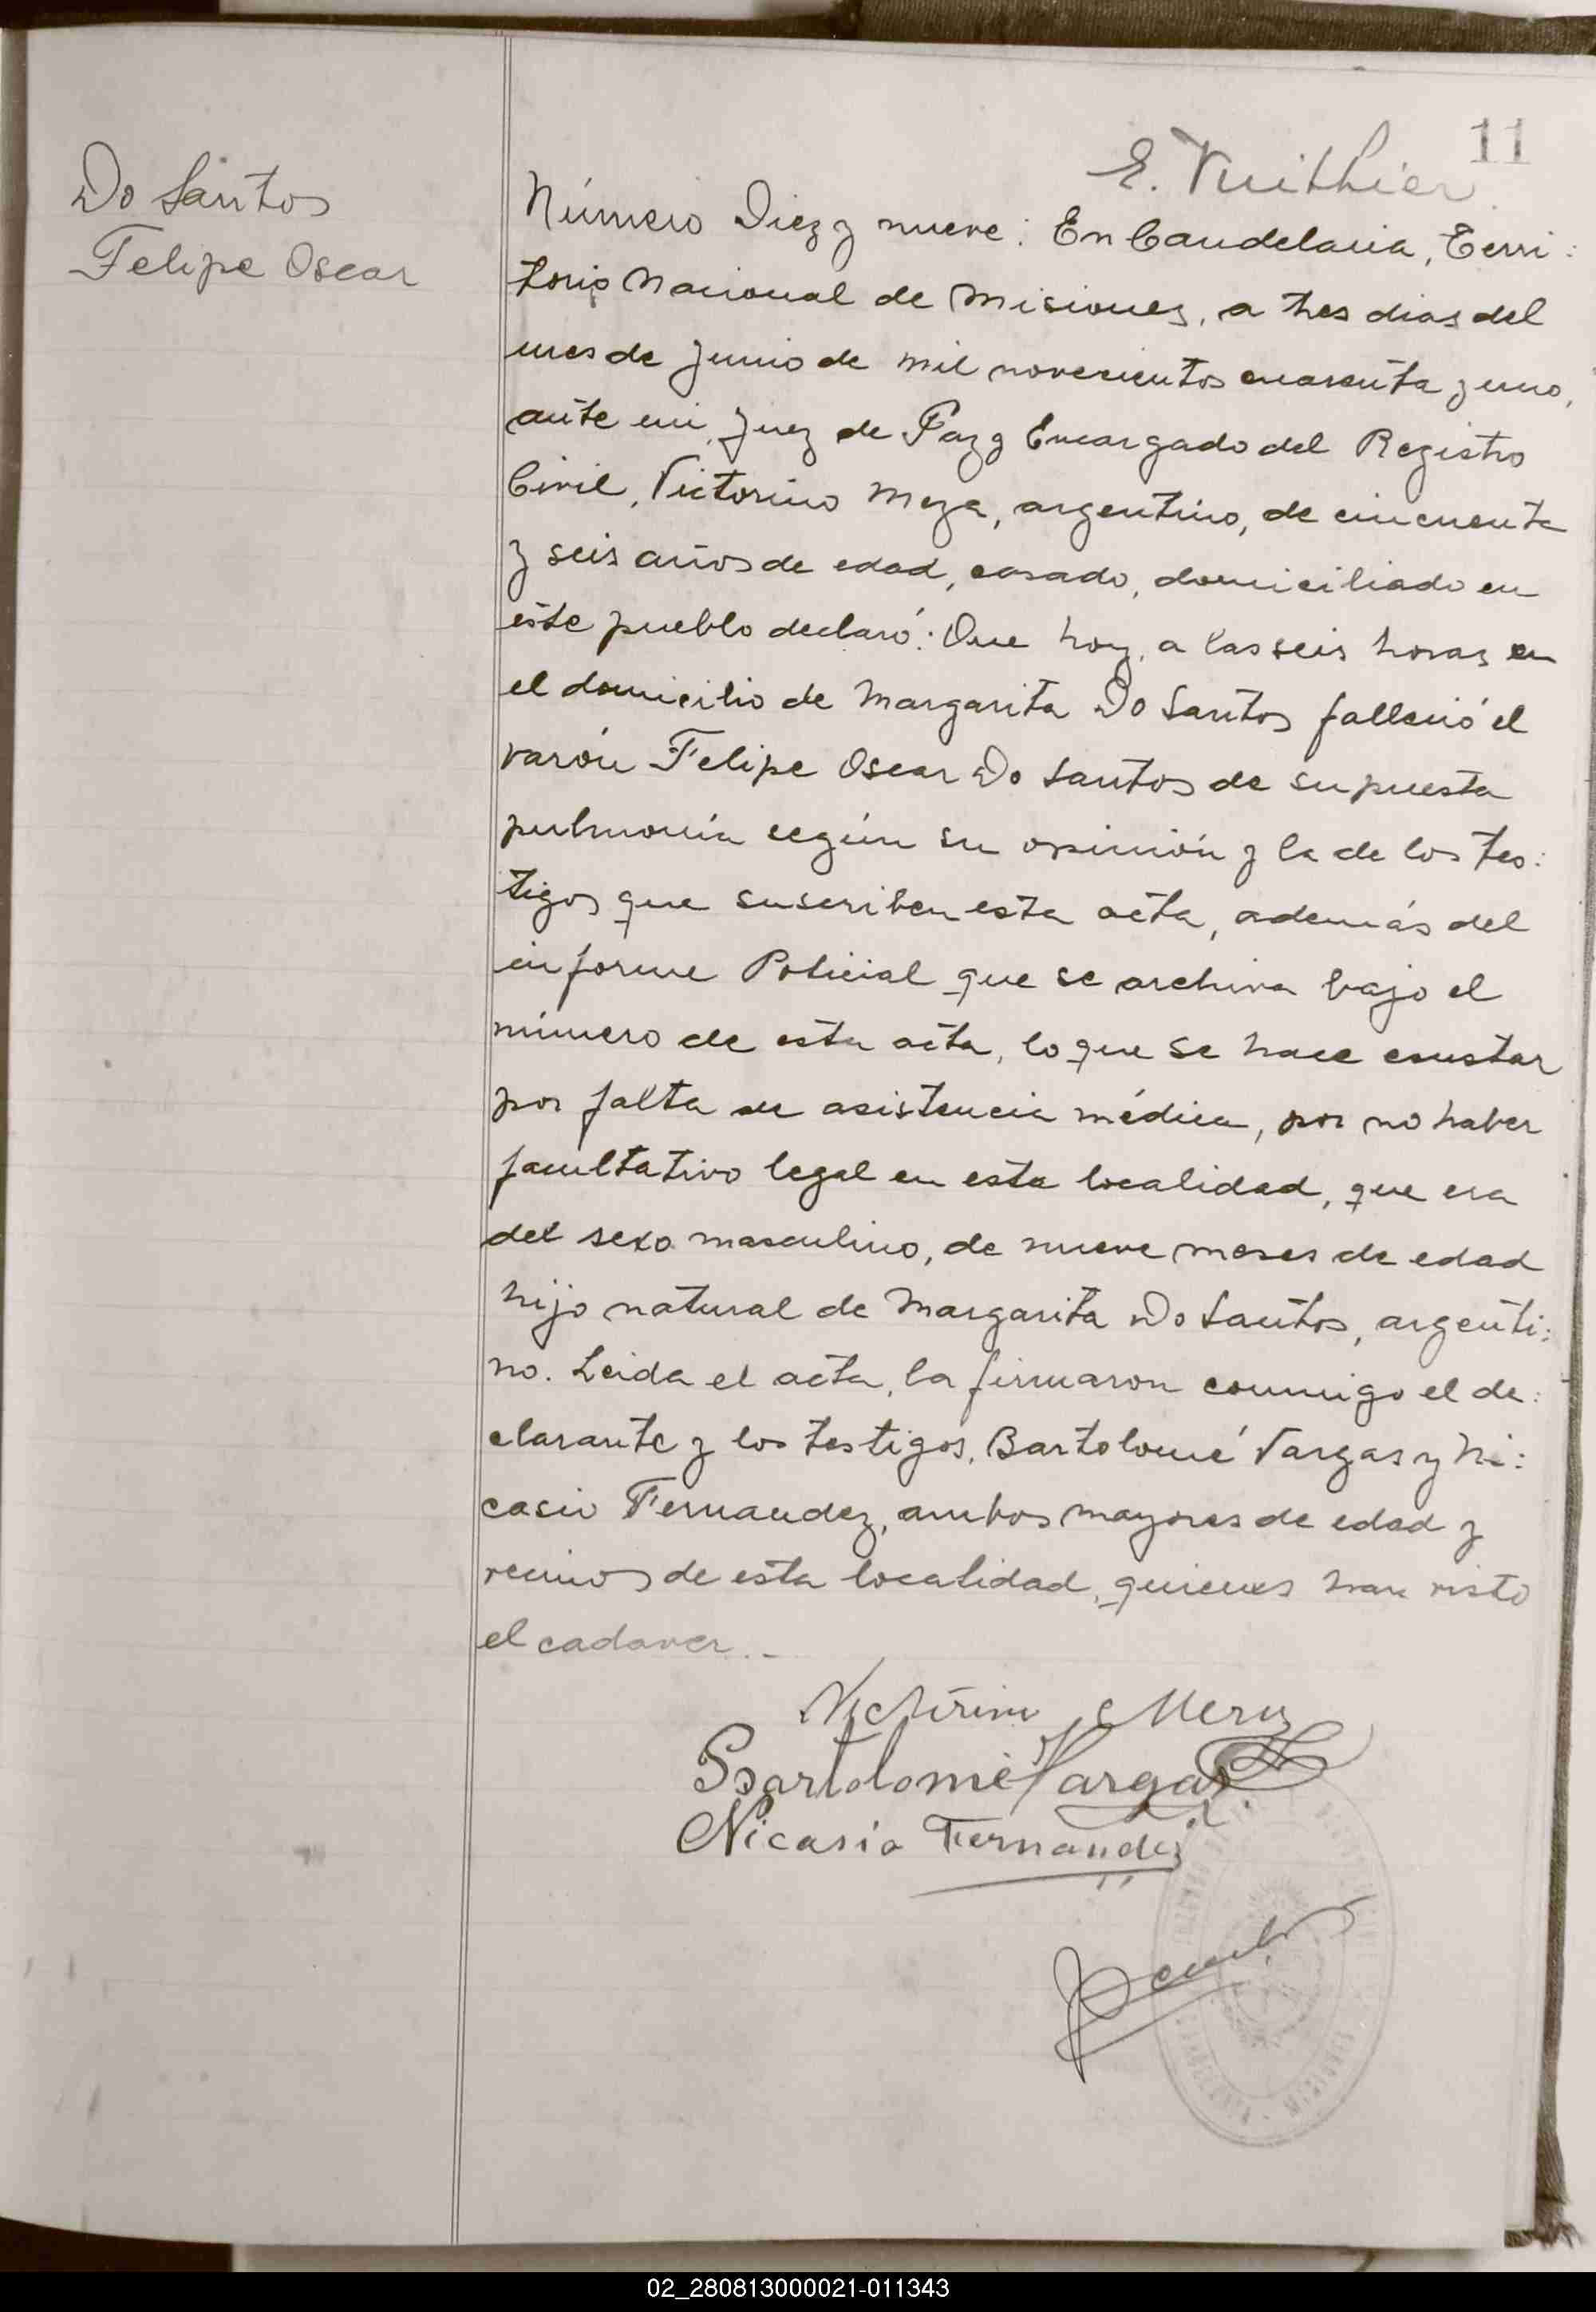 11
E. Vuithier
Do Santos
Felipe Oscar
Número Diez y nueve: En Candelaria, Terri:
torio Nacional de Misiones, a tres dias del
mes de Junio de mil novecientos cuarenta y uno,
ante mi, Juez de Paz y Encargado del Registro
Civil, Victorino Meza, argentino, de cincuenta
y seis años de edad, casado, domiciliado en
este pueblo declaró: Que hoy, a las seis horas en
el domicilio de Margarita Do Santos falleció el
varón Felipe Oscar Do Santos de supuesta
pulmonía según su opinión y la de los tes:
tigos que suscriben esta acta, además del
informe Policial que se archiva bajo el
número de esta acta, lo que se hace constar
por falta de asistencia médica, por no haber
facultativo legal en esta localidad, que era
del sexo masculino, de nueve meses de edad
hijo natural de Margarita Do Santos, argenti:
no. Leida el acta, la firmaron conmigo el de:
clarante y los testigos, Bartolomé Vargas y Ni:
casio Fernandez, ambos mayores de edad y
vecinos de esta localidad, quienes han visto
el cadaver.-
Victorino Meza
Bartolomé Vargas
Nicasio Fernandez
MISIONES
02_280813000021-011343